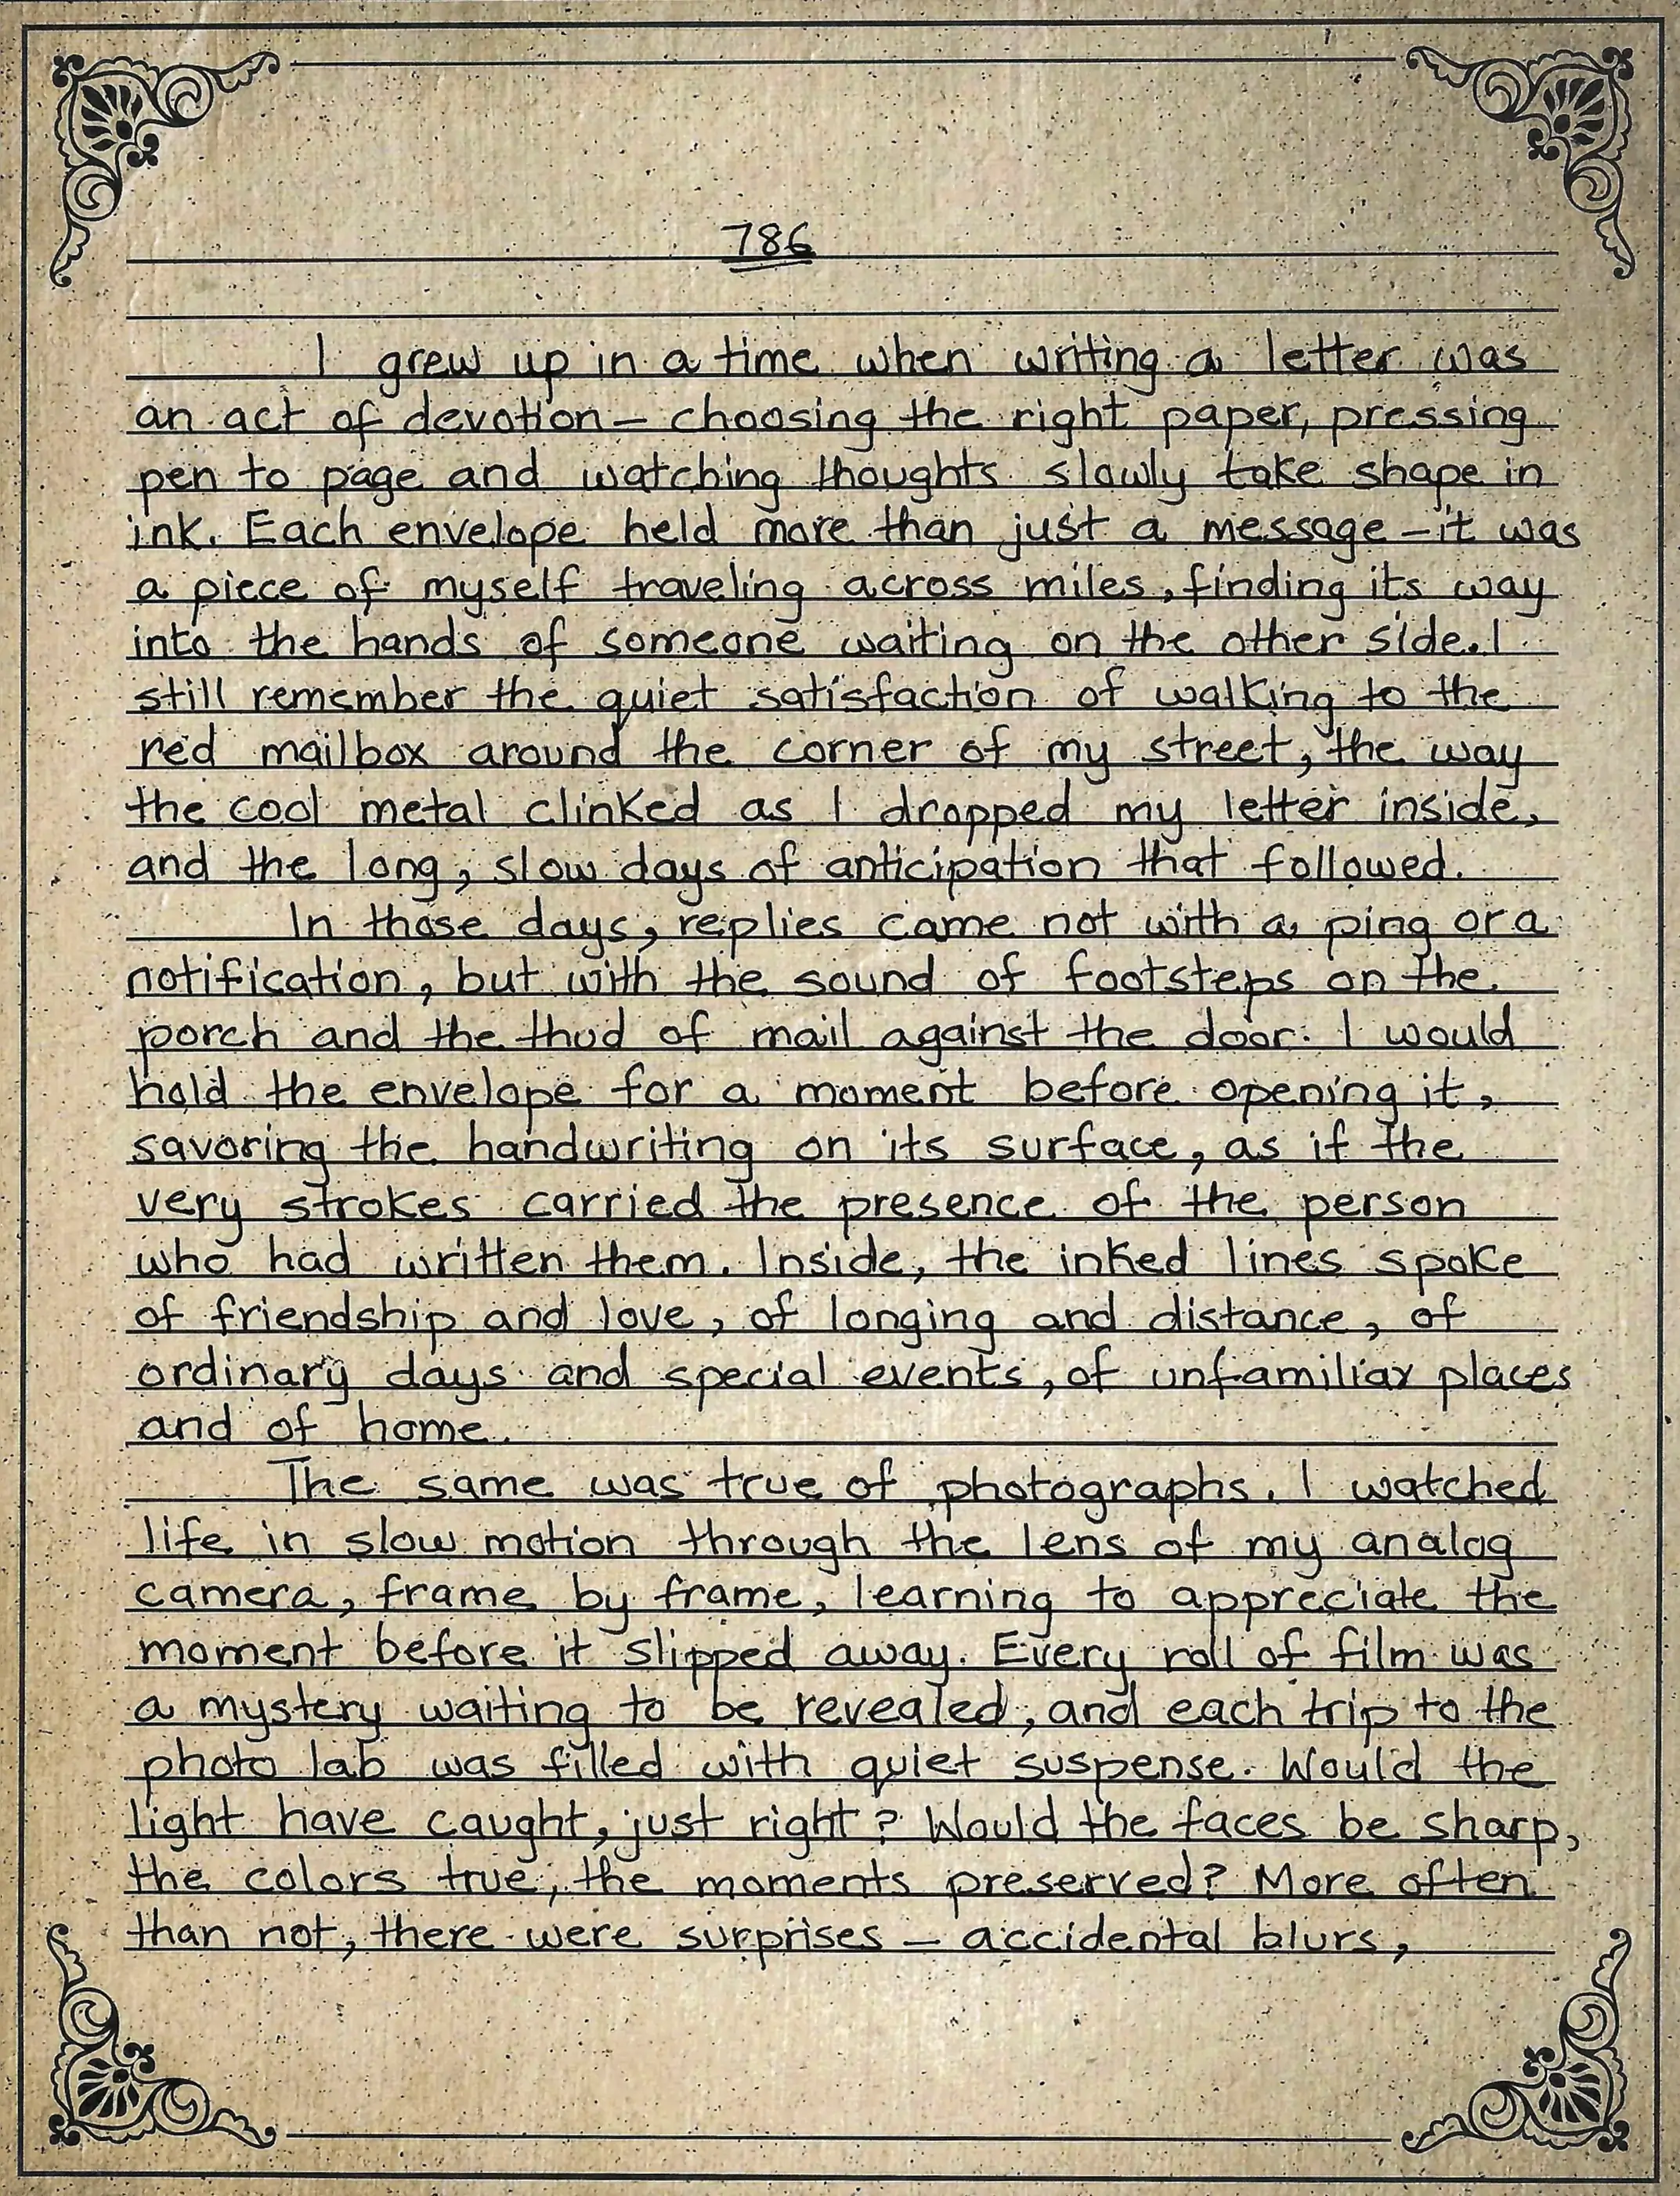 786
I grew up in a time when writing a letter was
an act of devotion – choosing the right paper, pressing
pen to page and watching thoughts slowly take shape in
ink. Each envelope held more than just a message – it was
a piece of myself traveling across miles, finding its way
into the hands of someone waiting on the other side. I
still remember the quiet satisfaction of walking to the
red mailbox around the corner of my street, the way
the cool metal clinked as I dropped my letter inside,
and the long, slow days of anticipation that followed.
In those days, replies came not with a ping or a
notification, but with the sound of footsteps on the
porch and the thud of mail against the door. I would
hold the envelope for a moment before opening it,
savoring the handwriting on its surface, as if the
very strokes carried the presence of the person
who had written them. Inside, the inked lines spoke
of friendship and love, of longing and distance, of
ordinary days and special events, of unfamiliar places
and of home.
The same was true of photographs. I watched
life in slow motion through the lens of my analog
camera, frame by frame, learning to appreciate the
moment before it slipped away. Every roll of film was
a mystery waiting to be revealed, and each trip to the
photo lab was filled with quiet suspense. Would the
light have caught, just right? Would the faces be sharp,
the colors true, the moments preserved? More often
than not, there were surprises – accidental blurs,